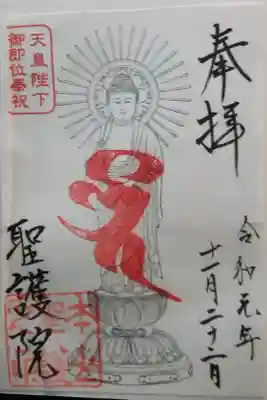 奉拝
令和元年
十一月二十二日
天皇陛下
御即位奉祝
聖護院